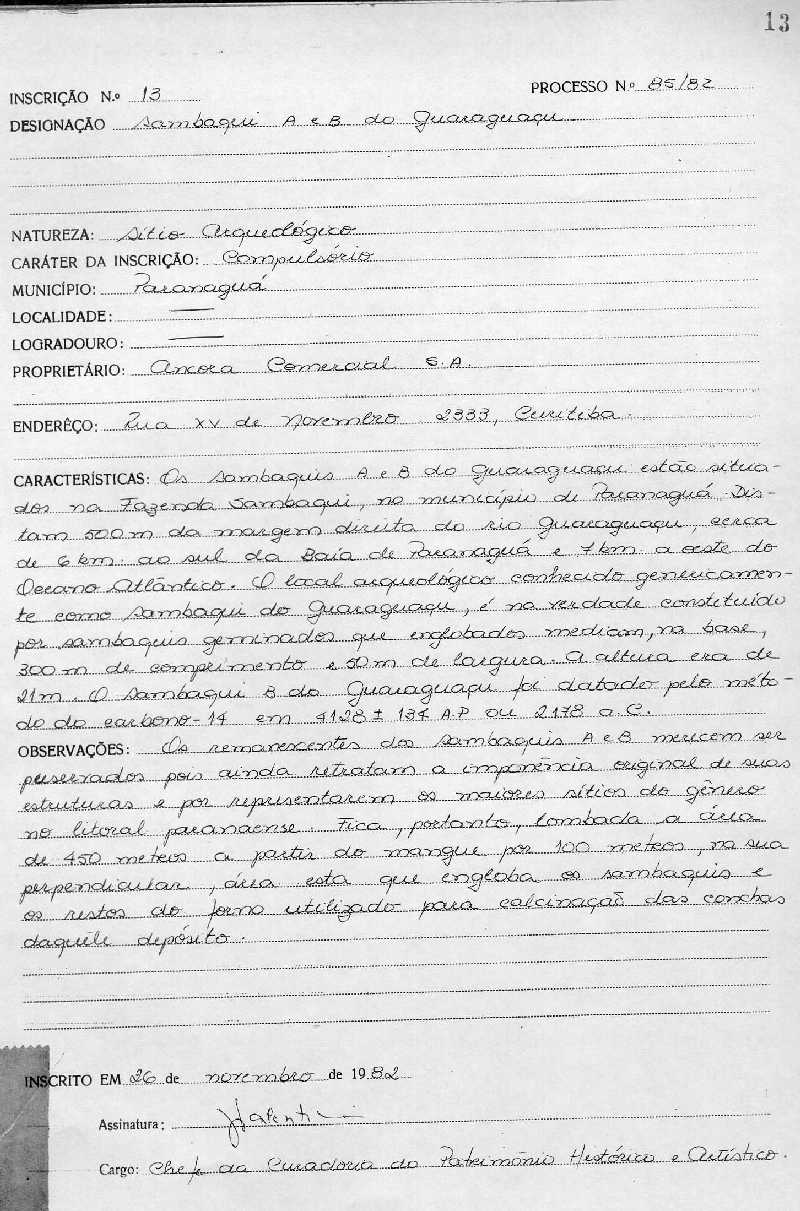 13
INSCRIÇÃO N.º 13 PROCESSO N.º 85/82
DESIGNAÇÃO Sambaqui A e B do Guaraguaçu
NATUREZA: Sítio Arqueológico
CARÁTER DA INSCRIÇÃO: Compulsório
MUNICÍPIO: Paranaguá
LOCALIDADE: —
LOGRADOURO: —
PROPRIETÁRIO: Ancora Comercial S.A.
ENDERÊÇO: Rua XV de Novembro 2333, Curitiba.
CARACTERÍSTICAS: Os sambaquis A e B do Guaraguaçu estão situa-
dos na Fazenda Sambaqui, no município de Paranaguá. Dis-
tam 500m da margem direita do rio Guaraguaçu, cerca
de 6 km. ao sul da Baía de Paranaguá e 7 km a oeste do
Oceano Atlântico. O local arqueológico conhecido genericamen-
te como Sambaqui do Guaraguaçu, é na verdade constituído
por sambaquis geminados que englobados mediam, na base,
300 m de comprimento e 50 m de largura. A altura era de
21m. O Sambaqui B do Guaraguaçu foi datado pelo méto-
do do carbono-14 em 4128 ± 134 A.P ou 2178 a.C.
OBSERVAÇÕES: Os remanescentes dos sambaquis A e B merecem ser
preservados pois ainda retratam a imponência original de suas
estruturas e por representarem os maiores sítios do gênero
no litoral paranaense. Fica, portanto, tombada a área
de 450 metros a partir do mangue por 100 metros, na sua
perpendicular, área esta que engloba os sambaquis e
os restos do forno utilizado para calcinação das conchas
daquele depósito.
INSCRITO EM 26 de novembro de 1982
Assinatura:
Cargo: Chefe da Curadoria do Patrimônio Histórico e Artístico.